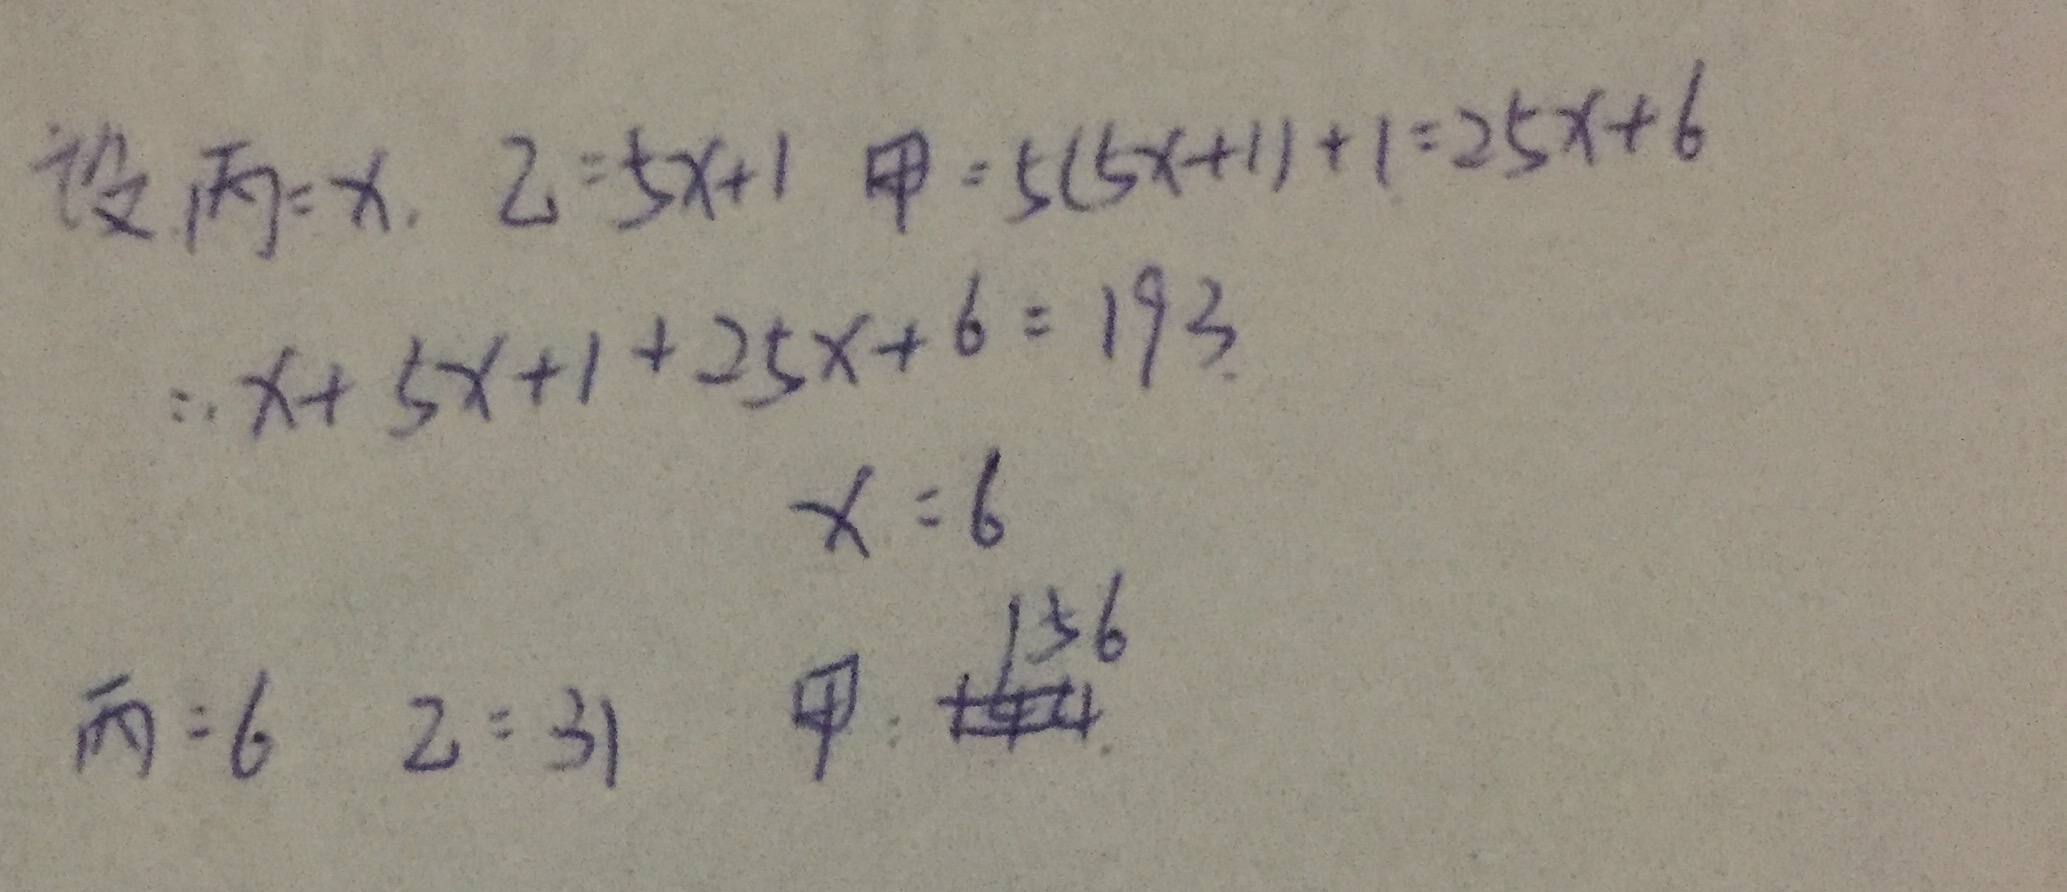 设丙=x. 乙=5x+1 甲=5(5x+1)+1=25x+6
∴x+5x+1+25x+6=193
x=6
丙=6 乙=31 甲: 156